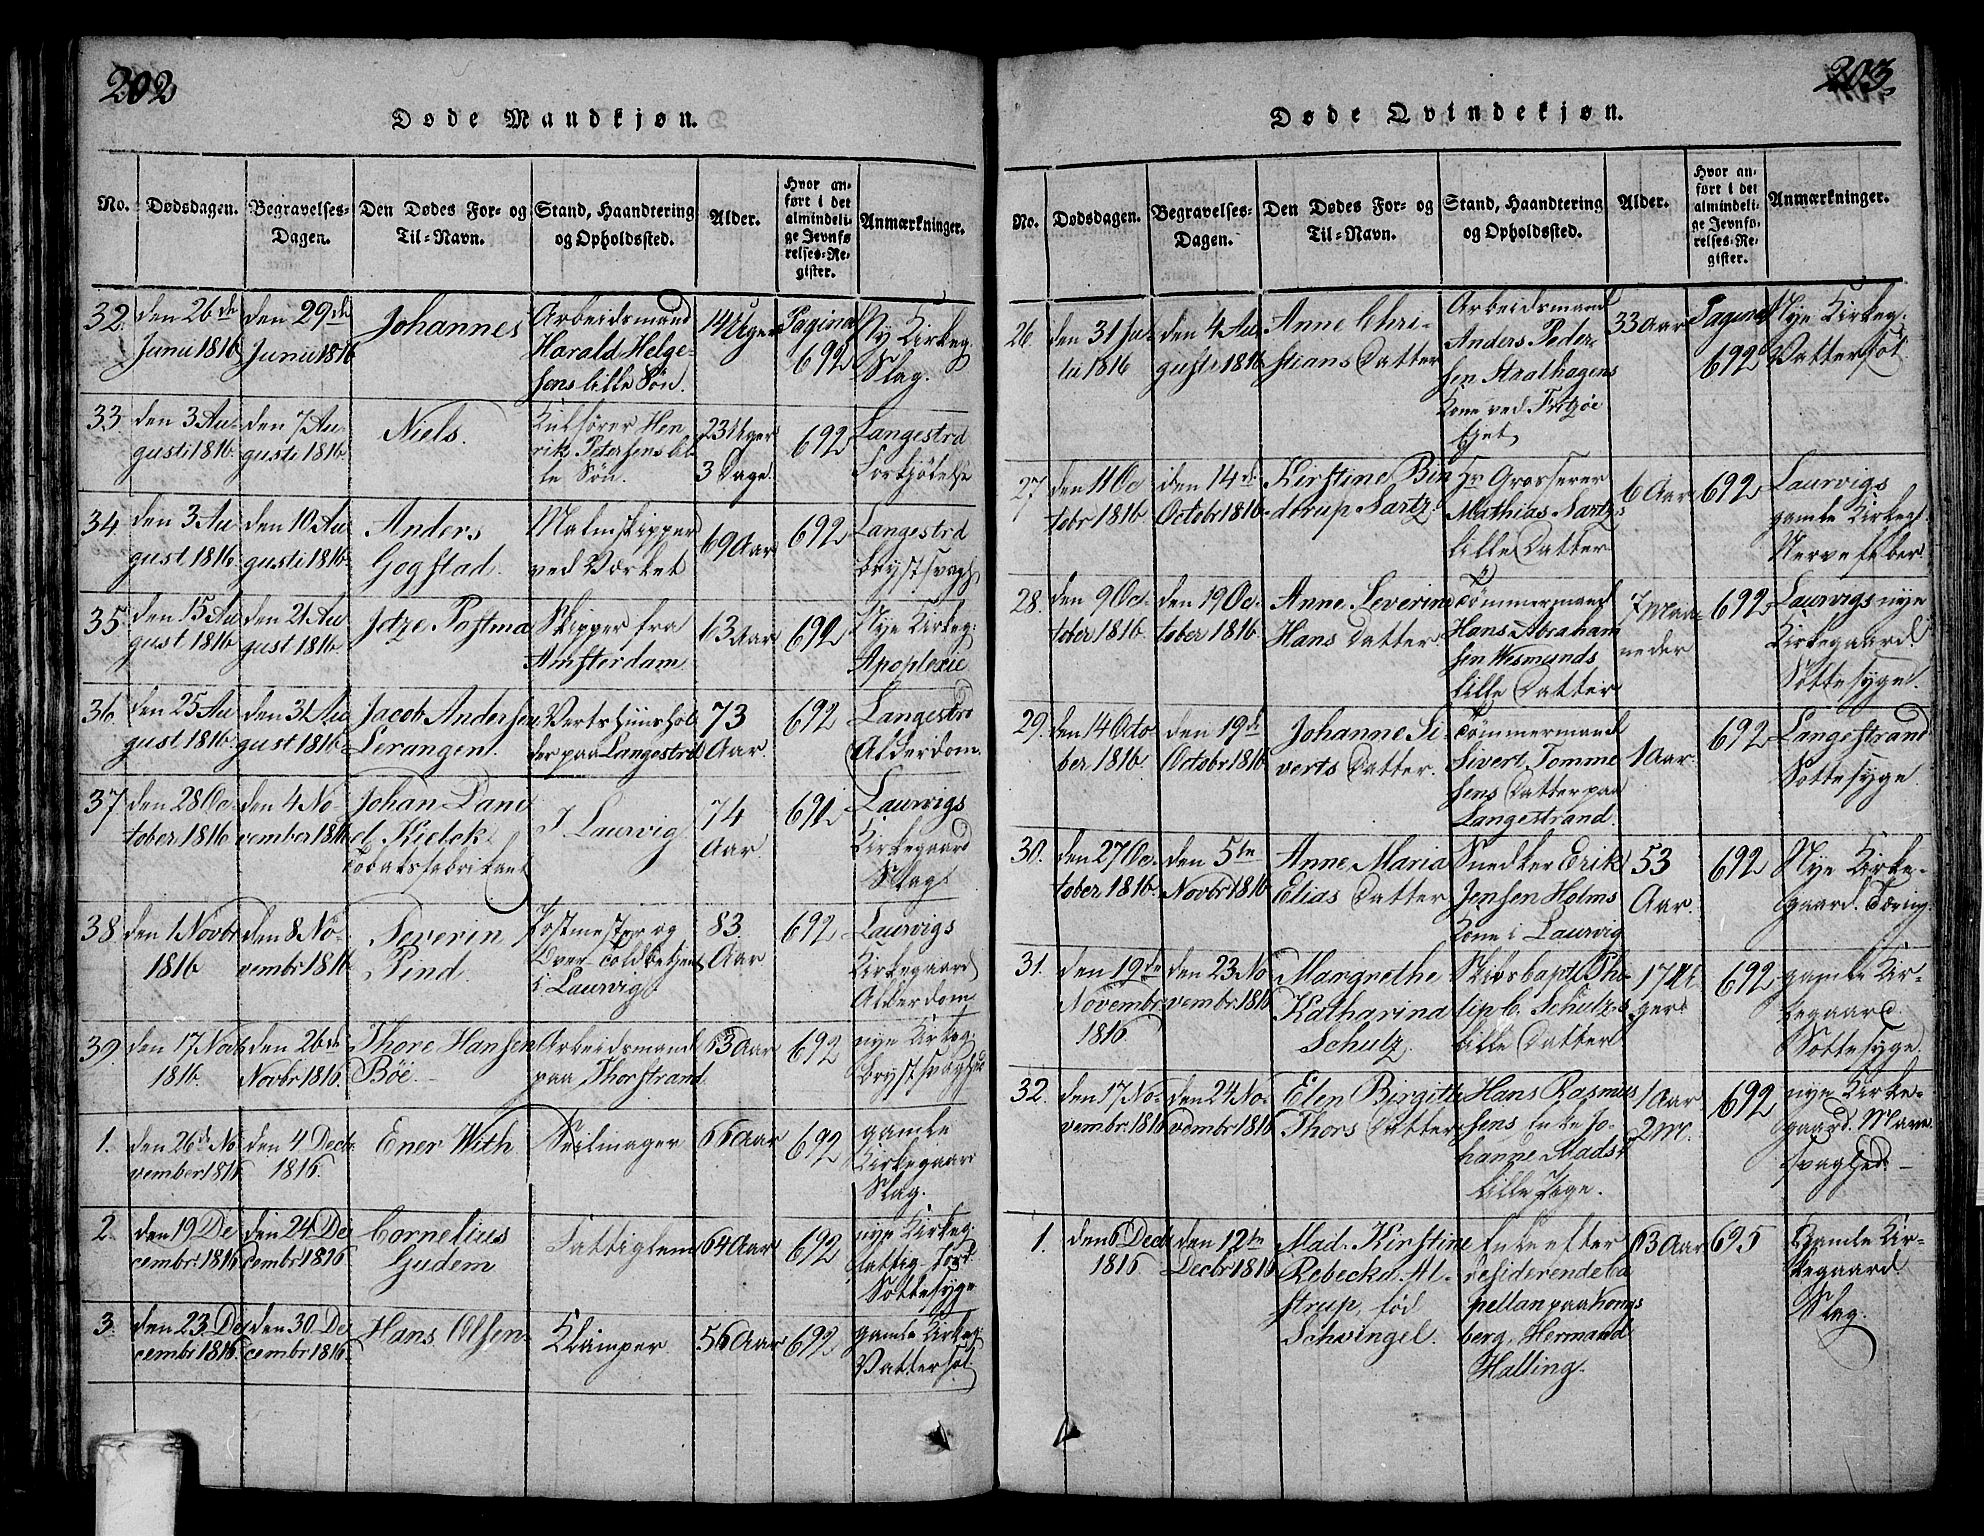 202
Døde Mandkjøn.
No.
Dødsdagen.
Begravelses-
Dagen.
Den Dødes For- og
Til-Navn.
Stand, Haandtering
og Opholdssted.
Alder.
Hvor an-
ført i det
almindeli-
ge Jevnfø-
relses-Re-
gister.
Anmærkninger.
32.
den 26de
Junii 1816
den 29de
Junii 1816
Johannes
Arbeidsmand
Harald Helge-
sens lille Søn.
14 Uger
Pagina
692
Ny Kirkeg.
Slag.
33.
den 3 Au-
gusti 1816.
den 7 Au-
gusti 1816.
Niels.
Kulkører Hen
rik Petersens lil-
le Søn.
23 Uger
3 Dage.
692
Langestrd
Forkjølelse
34.
den 3 Au
gust 1816.
den 10 Au
gusti 1816.
Anders
Gogstad.
Malmskipper
ved Værket
69 Aar
692
Langestrd
brystsvagh
35.
den 15 Au
gust 1816
den 21 Au
gust 1816.
Jetze Postma
Skipper fra
Amsterdam
63 Aar
692
Nye Kirkeg.
Apoplexie
36.
den 25 Au
gust 1816.
den 31 Au
gust 1816
Jacob Andersen
Lerangen.
Vertshuushol
der paa Langestrd
73
Aar.
692
Langestrd
Alderdom.
37.
den 28 Oc
tober 1816
den 4 No-
vember 1816
Johan Dani
el Kielck
Tobaksfabrikant
I Laurvig
74
Aar.
692
Laurvigs
Kirkegaard
Slag.
38.
den 1 Novbr
1816
den 8 No-
vembr 1816
Severin
Pind.
Postmester og
Over Toldbetjent
i Laurvig
83.
Aar
692
Laurvigs
Kirkegaard
Alderdom
39.
den 17 Novb
1816.
den 26de
Novbr 1816.
Thore Hansen
Böe.
Arbeidsmand
paa Thorstrand
63 Aar
692
nye Kirkeg
brystsvaghed
1.
den 26de No
vember 1816
den 4 Decb
1816.
Ener With
Seilmager
66 Aar
692
gamle
Kirkegaard
Slag.
2.
den 19 De
cembr. 1816
den 24 De
cembr 1816
Cornelius
Gudem
Fattiglem
64 Aar
692
nye Kirkeg:
fattig Jord
Sottesyge
3.
den 23 De
cembr 1816.
den 30 De
cembr 1816.
Hans Olsen
Klamper
56 Aar
692
gamle Kirkeg
Vattersot
203.
Døde Qvindekjøn.
No.
Dødsdagen.
Begravelses-
Dagen.
Den Dødes For- og
Til-Navn.
Stand, Haandtering
og Opholdssted.
Alder.
Hvor an-
ført i det
almindeli-
ge Jevnfø-
relses-Re-
gister.
Anmærkninger.
26.
den 31 Ju-
lii 1816
den 4 Au
gusti 1816
Anne Chri-
stians Datter
Arbeidsmand
Anders Peder
sen Stralhagens
Kone ved Fritzöe
33 Aar
Pagina
692
Nye Kirkeg.
Vattersot.
27
den 11 Oc
tobr 1816.
den 14de
Octobr 1816
Kirstine Bin
derup Sartz.
Hr Grosserer
Mathias Sartz's
lille Datter
6 Aar
692
Laurvigs
gamle Kirkeg.
Nervefeber
28.
den 9 Oct
tober 1816.
den 19 Oc-
tober 1816.
Anne Leverine
Hans Datter.
Tömmermand
Hans Abraham
sen Wesmunds
lille Datter
7 Maa-
neder
692
Laurvigs nye
Kirkegaard.
Sottesyge.
29.
den 14 Octo
ber 1816.
den 19de
Octobr 1816
Johanne Si
verts Datter.
Tömmermand
Sivert Tomme
sens Datter paa
Langestrand.
1 Aar.
692
Langestrand
Sottesyge
30.
den 27 Oc-
tober 1816.
den 5te
Novbr 1816
Anne Maria
Elias Datter
Snedker Erik
Jensen Holms
Kone i Laurvig
53
Aar.
692
Nye Kirke-
gaard. Tæring.
31.
den 19de
Novembr
1816.
den 23 No
vembr 1816
Mangrethe
Katharina
Schulz.
Skibskapt. Phi-
lip C. Schulz's
lille Datter
17 U-
ger
692
gamle Kir-
kegaard.
Sottesyge.
32.
den 17 No-
vembr 1816
den 24 No-
vembr 1816
Elen Birgitte
Thors Datter
Hans Rasmus
sens Enke Jo-
hanne Mads
lille Pige.
1 Aar
2 M.
692
nye Kirke-
gaard. Mave
svaghed.
1.
den 6 Decb
1816
den 12te
Decbr 1816
Mad. Kirstine
Rebecka Al-
strup, fød
Schvingel.
Enke efter
residerende Ca
pellan paa Kongs
berg, Hermand
Halling.
63 Aar
695
Gamle Kir-
kegaard.
Slag.